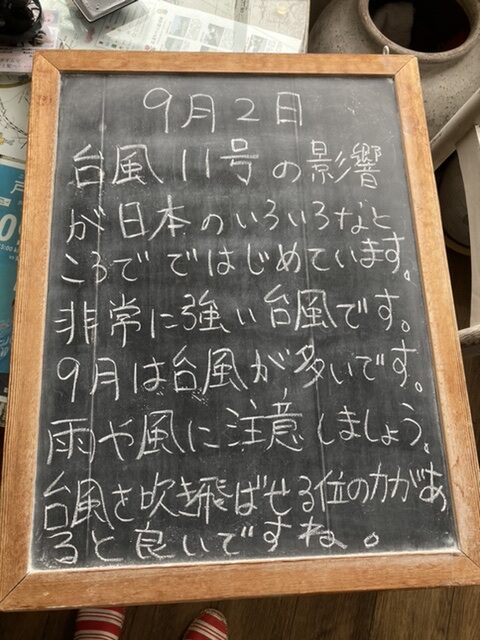 9月2日
台風11号の影響
が日本のいろいろなと
ころで ではじめています。
非常に強い台風です。
9月は台風が多いです。
雨や風に注意しましょう。
台風を吹き飛ばせる位の力があ
ると良いですね。